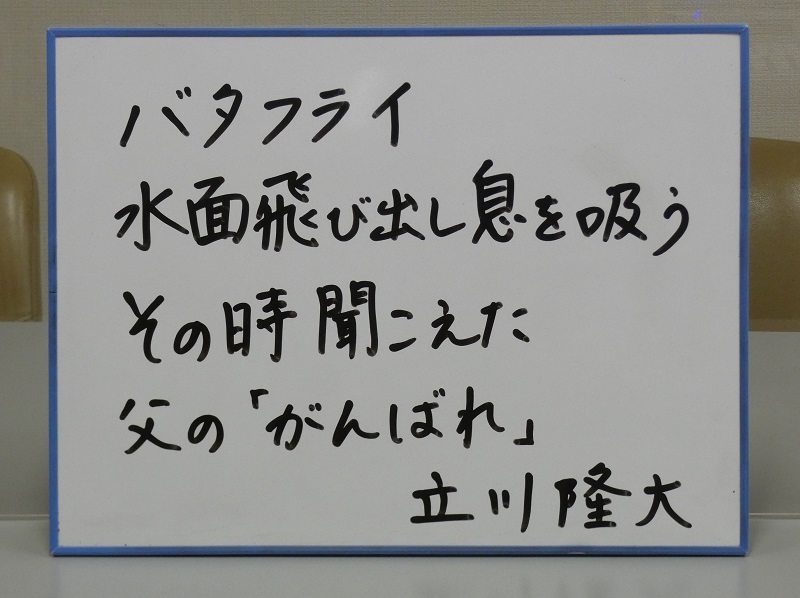 バタフライ
水面飛び出し息を吸う
その時聞こえた
父の「がんばれ」
立川隆大